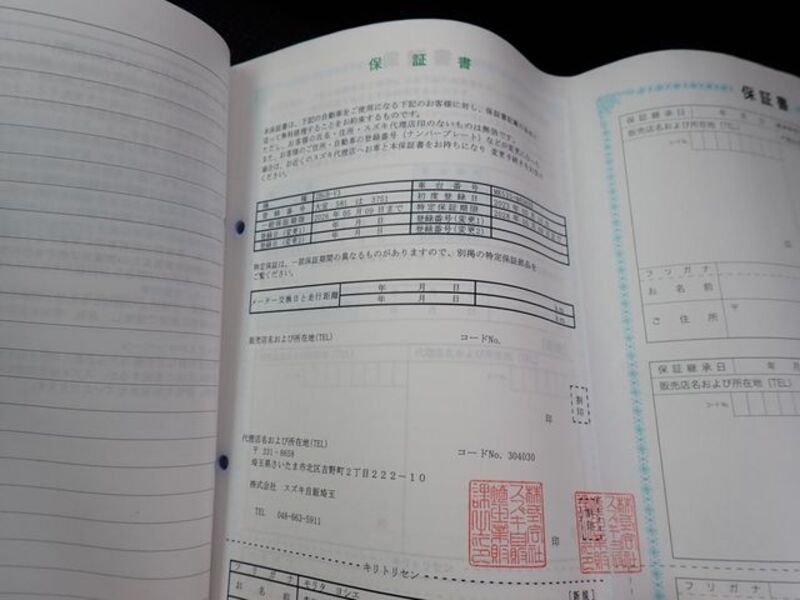 保証書
本保証書は、下記の自動車をご使用になる下記のお客様に対し、保証書記載の
従って無料修理することをお約束するものです。
ただし、お客様の氏名・住所・スズキ代理店印のないものは無効です。
また、お客様のご住所・自動車の登録番号(ナンバープレート)などが変更になった
場合は、お近くのスズキ代理店へお車と本保証書をお持ちになり 変更手続きをお受け
ください。
機種
車台番号
登録番号 大宮 581 は 3751
初度登録日
一般保証期間 2026 年 05 月 09 日まで
特定保証期間
登録日(変更1) 年 月 日
登録番号(変更1)
登録日(変更2) 年 月 日
登録番号(変更2)
特定保証は、一般保証期間の異なるものがありますので、別掲の特定保証部品を
ご覧ください。
メーター交換日と走行距離
年 月 日 km
年 月 日 km
販売店名および所在地(TEL) コードNo.
割印
印
代理店名および所在地(TEL) コードNo. 304030
〒 331-8658
埼玉県さいたま市北区吉野町2丁目222-10
株式会社 スズキ自販埼玉
TEL 048-663-5911
印
キリトリセン
フリガナ キリタ ヨシエ
お名前
[新規]
保証書
保証継承日 年 月 日
販売店名および所在地(TEL)
コードNo.
フリガナ
お名前
ご住所 〒
保証継承日 年 月
販売店名および所在地(TEL)
コードNo.
フリガナ